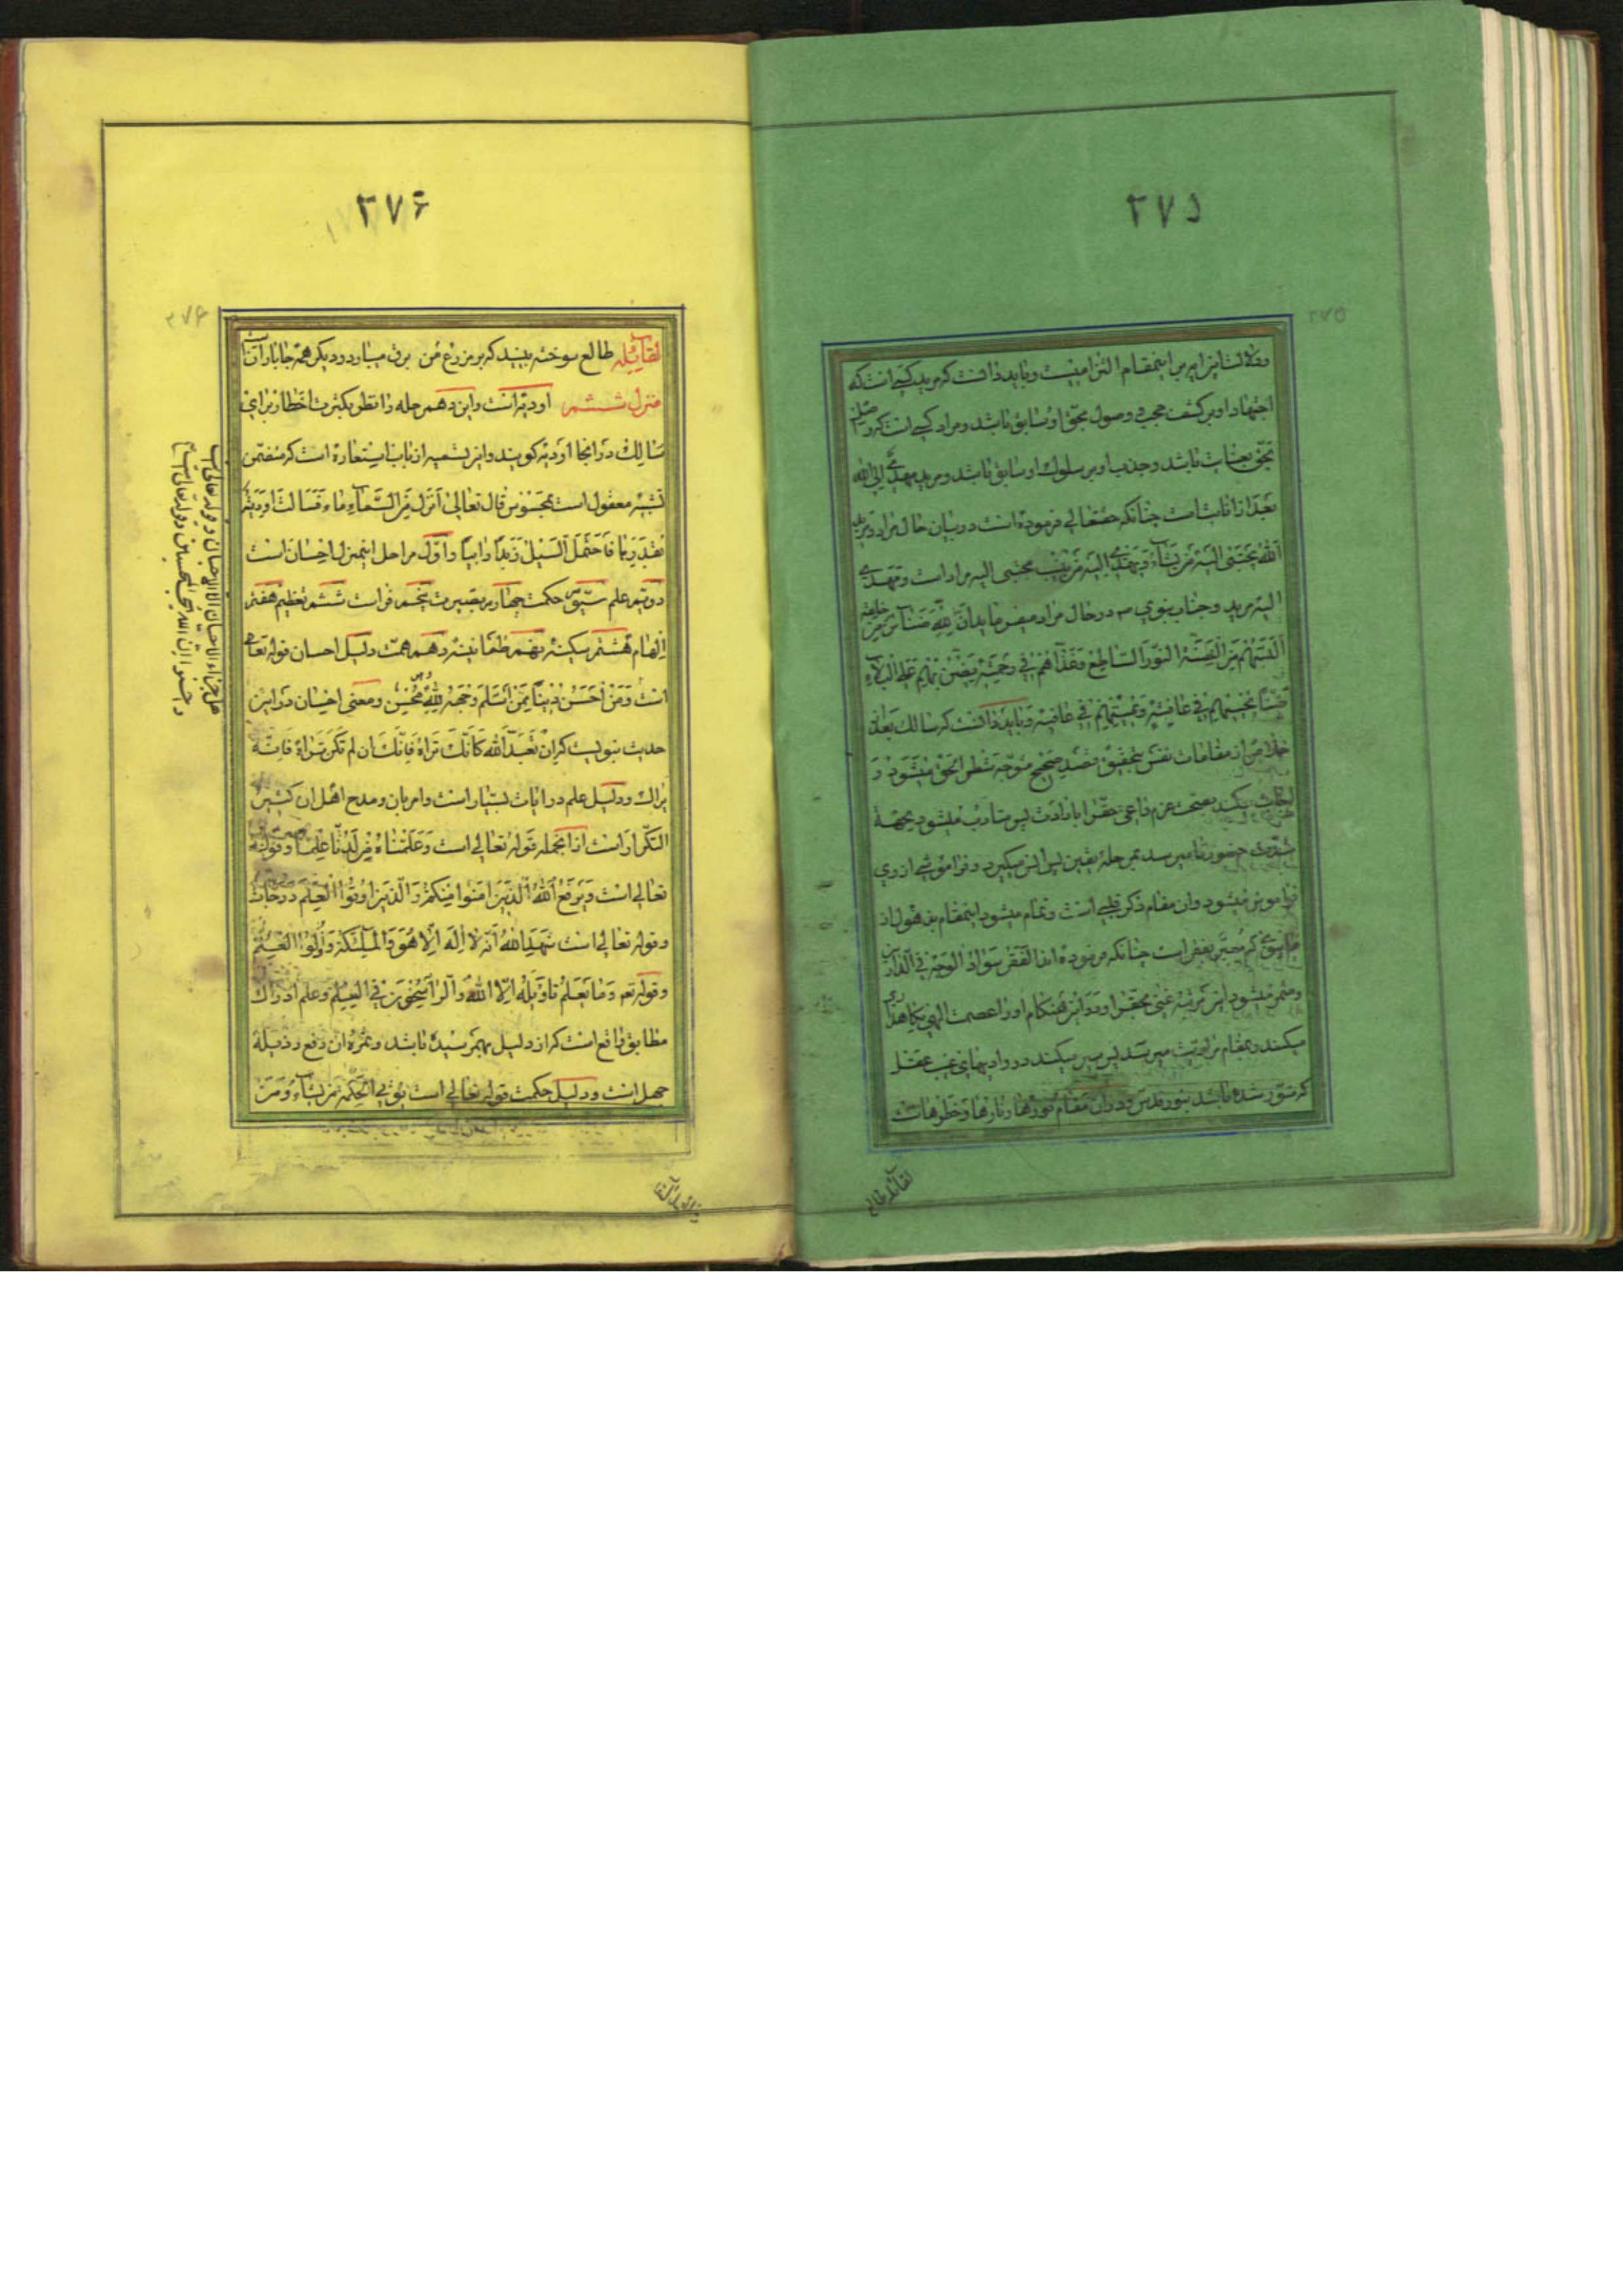 ۲۷۵
۲۷۵
و دلالت این امر بر اینمقام التزامیست و باید دانست که مرید کسی است که
اجتهاد او بر کشف حجب و وصول بحق او سابق باشد و مراد کسی است که وصل
بحق بعنایت باشد و جذب او بر سلوک او سابق باشد و مرید مهدی الی الله
بعد از انابت است چنانکه حقتعالی فرموده است در بیان حال مراد و مرید
الله یجتبی الیه من یشاء و یهدی الیه من ینیب مجتبی الیه مراد است و مهدی
الیه مرید و جناب نبوی ص در حال مراد میفرماید ان لله ضنائن من خلقه
البسهم النور الساطع و غذاهم فی رحمته یضن بهم علی البلاء
یحییهم فی عافیته و یمیتهم فی عافیته و باید دانست که سالک بعد از
خلاص از مقامات نفس بتحقیق بقصد صحیح متوجه بشطر الحق میشود و
اجابت میکند بصحت عزم داعی حق را با ارادت پس متادب میشود بجهة
شدت حضور تا میرسد بمرحله یقین پس انس میگیرد و فراموشی از وی
فراموش میشود و ان مقام ذکر قلبی است و تمام میشود اینمقام بذهول از
ماسوی که معبر بفقر است چنانکه فرموده اند الفقر سواد الوجه فی الدارین
و مثمر میشود این مرتبه غنی بحق را و در این هنگام او را عصمت الهی نگاهداری
میکند و بمقام مرادیت میرسد پس سیر میکند در وادیهای غیب عقل
که منور شده باشد بنور قدس و در ان مقام نورها و نارها و خطرهاست
لقائله طالع
۲۷۶
۲۷۶
لقائله طالع سوخته ببیند که بر مزرع من برق میبارد و دیگر همه جا باران است
منزل ششم اودیه است و این دهمرحله دارد نظر بکثرت اخطار برای
سالک در انجا اودیه گویند و این تسمیه از باب استعاره است که متضمن
تشبیه معقول است بمحسوس قال تعالی انزل من السماء ماء فسالت اودیة
بقدرها فاحتمل السیل زبداً رابیاً و اول مراحل اینمنزل احسان است
دویم علم سیم حکمت چهارم بصیرت پنجم فراست ششم تعظیم هفتم
الهام هشتم سکینه نهم طمانینه دهم همت دلیل احسان قوله تعالی
است و من احسن دیناً ممن اسلم وجهه لله و هو محسن و معنی احسان در این
حدیث نبویست که ان تعبد الله کانک تراه فانک ان لم تکن تراه فانه
یراک و دلیل علم در ایات بسیار است و امر بان و مدح اهل ان کثیر
التکرار است از انجمله قوله تعالی است و علمناه من لدنا علما و قوله
تعالی است و یرفع الله الذین امنوا منکم و الذین اوتوا العلم درجات
و قوله تعالی است شهد الله انه لا اله الا هو و الملئکة و اولوا العلم
و قوله تعم و ما یعلم تاویله الا الله و الراسخون فی العلم و علم ادراک
مطابق واقع است که از دلیل بهم رسیده باشد و ثمره ان دفع رذیلة
جهل است و دلیل حکمت قوله تعالی است یؤتی الحکمة من یشاء و من
هل جزاء الاحسان الا الاحسان و قوله تعالی
و احسنوا ان الله یحب المحسنین و قوله تعالی